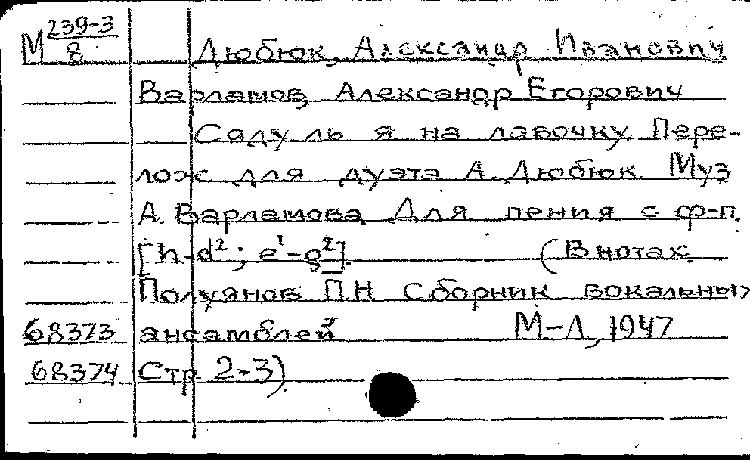 М 239-3/8 Дюбюк, Александр Иванович
Варламов, Александр Егорович
Сяду ль я на лавочку. Пере-
лож для дуэта А. Дюбюк. Муз
А. Варламова Для пения с ф-п.
[h-d²; e¹-g²]. (В нотах:
Полуянов П.Н Сборник вокальных
68373 ансамблей М-Л, 1947
68374 Стр 2-3).